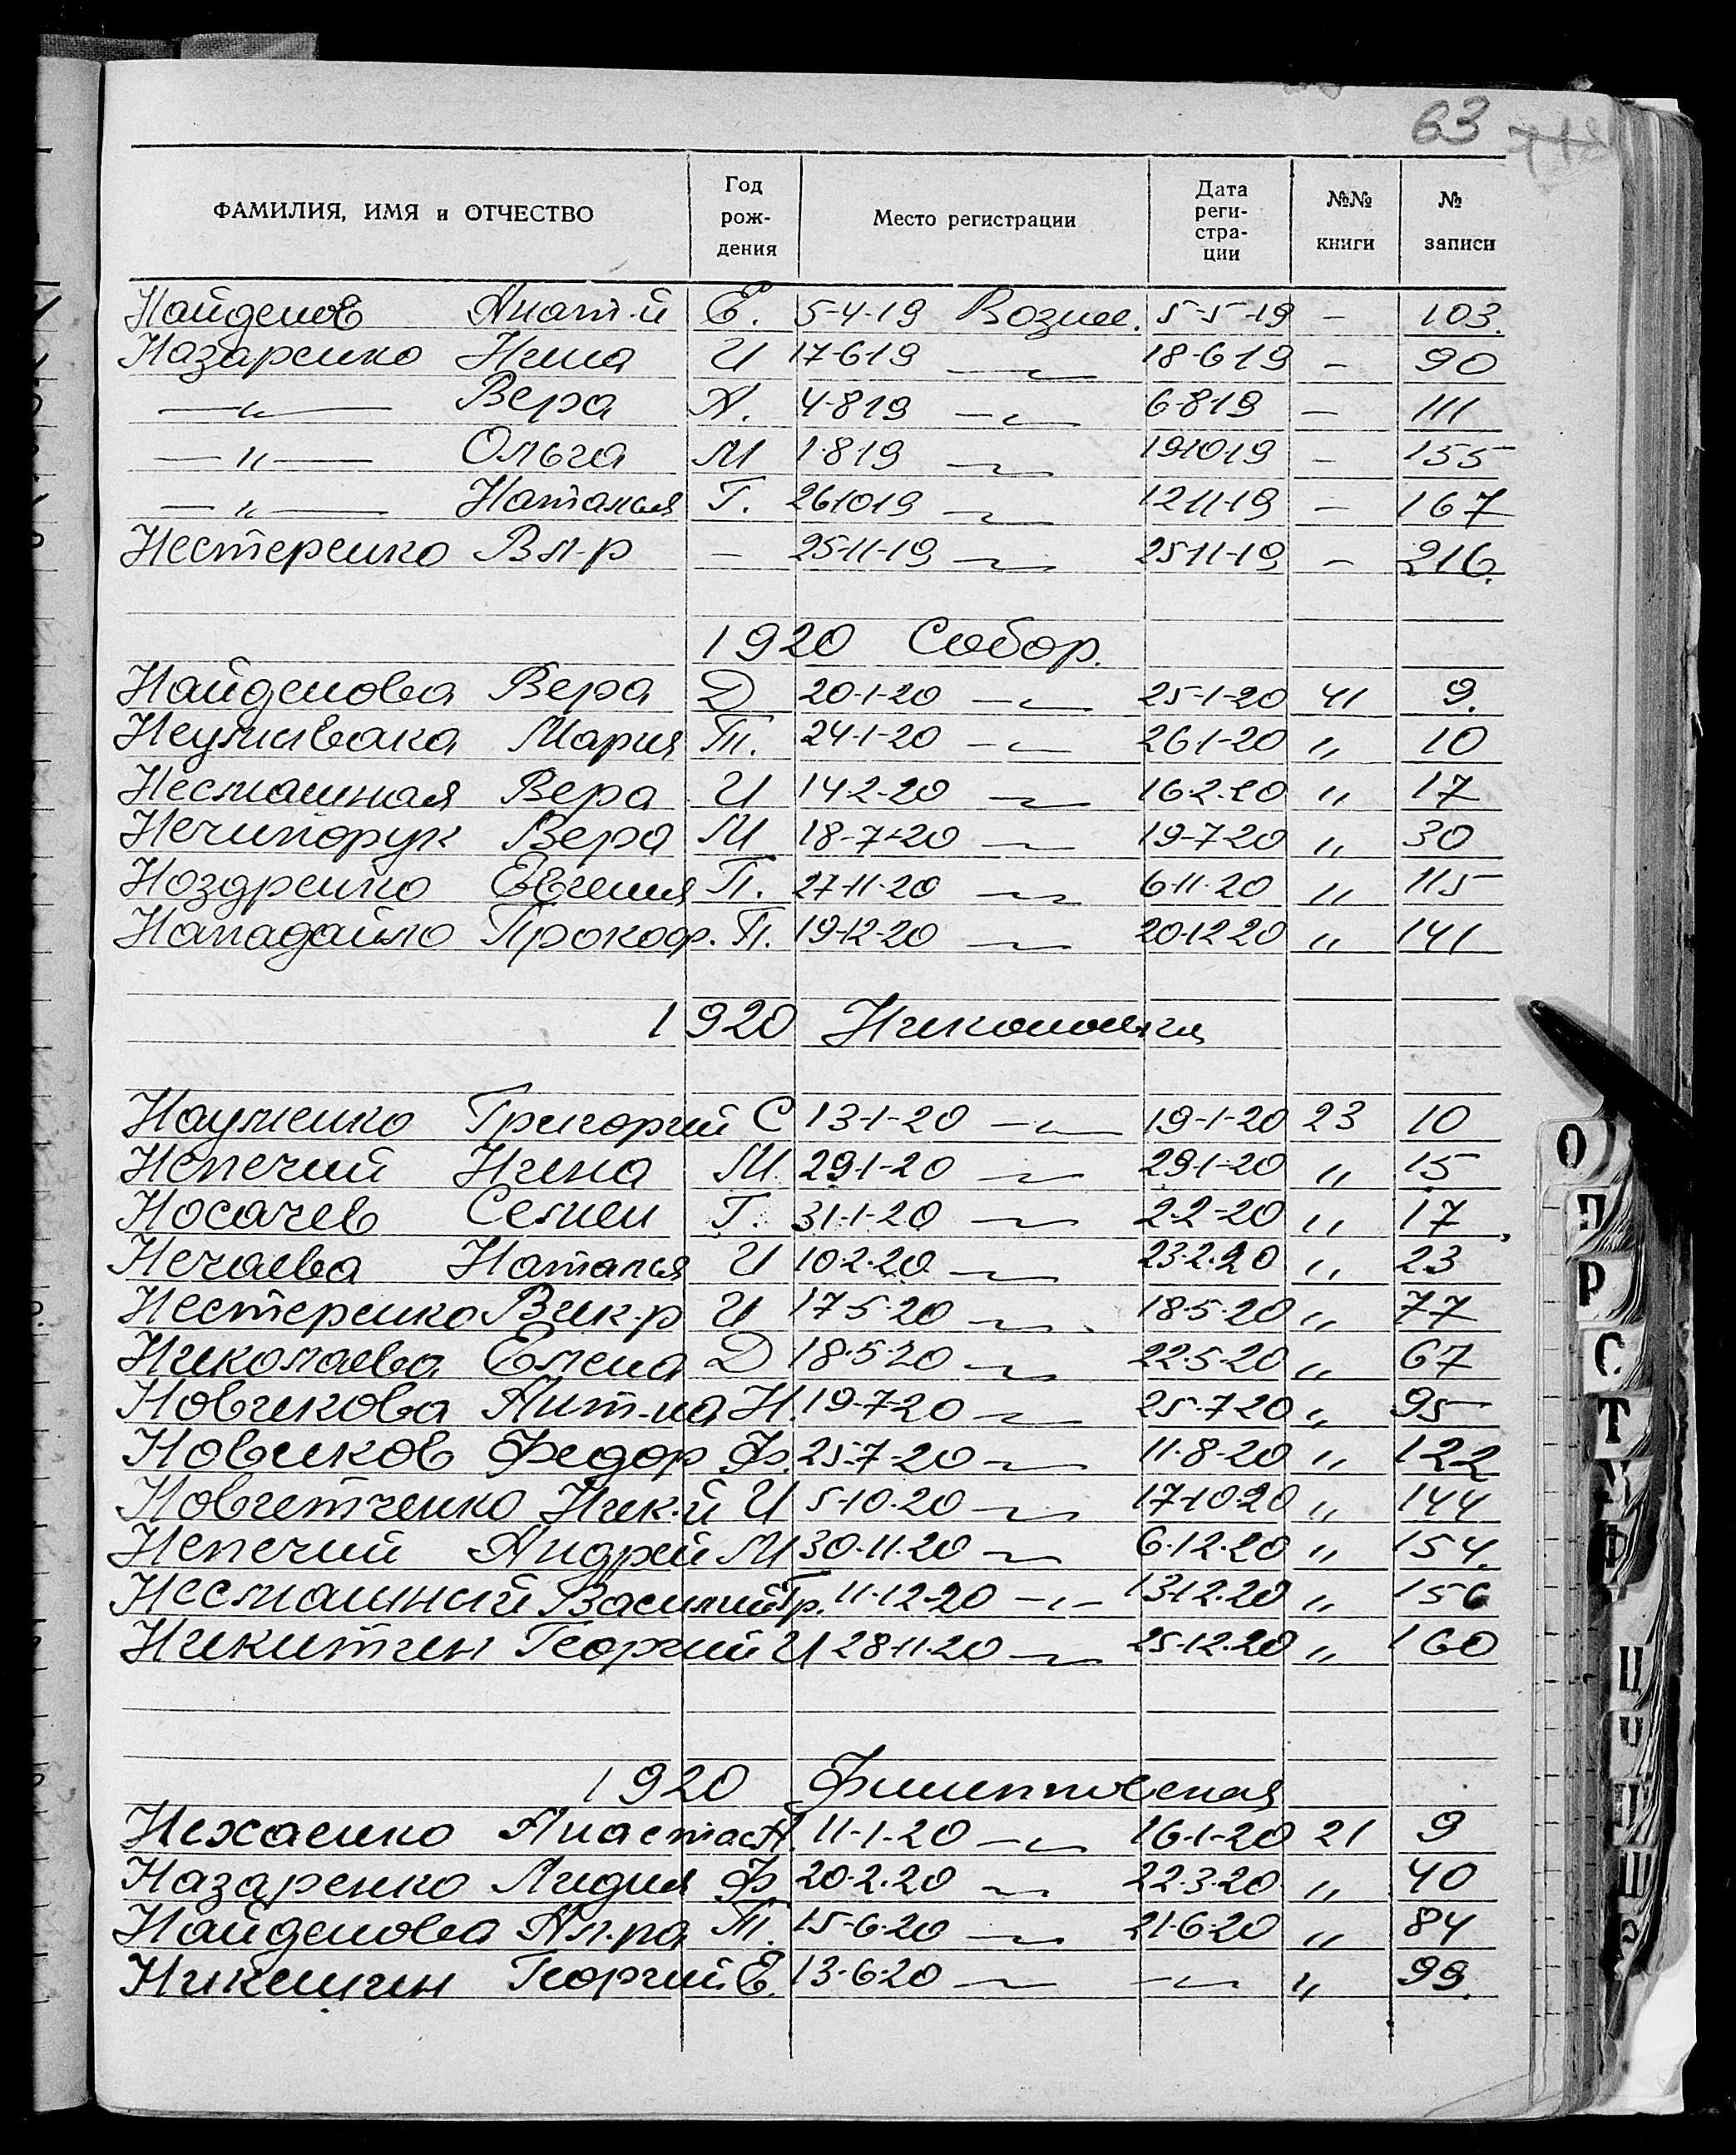 63
ФАМИЛИЯ, ИМЯ и ОТЧЕСТВО Год рож- дения Место регистрации Дата реги- стра- ции №№ книги № записи
Найденов Анат-й Е. 5-4-19 Вознес. 5-5-19 - 103.
Назаренко Нина И 17-6 19 —"— 18-6 19 - 90
—"— Вера А. 4-8 19 —"— 6-8 19 - 111
—"— Ольга М 1-8 19 —"— 19 10 19 - 155
—"— Наталья Г. 26 10 19 —"— 12 11-19 - 167
Нестеренко Вл-р - 25-11-19 —"— 25-11-19 - 216.
1920 Собор.
Найденова Вера Д 20-1-20 —"— 25-1-20 41 9.
Неумывака Мария Т. 24-1-20 —"— 26 1-20 " 10
Несмашная Вера И 14 2-20 —"— 16 2.20 " 17
Нечипорук Вера М 18-7-20 —"— 19-7-20 " 30
Ноздренко Евгения П. 27-11-20 —"— 6-11-20 " 115
Нападайло Прокоф. П. 19-12-20 —"— 20-12 20 " 141
1920 Николаевка
Науменко Григорий С 13-1-20 —"— 19-1-20 23 10
Непечий Нина М. 29 1-20 —"— 29 1-20 " 15
Носачев Семен Г. 31-1-20 —"— 2-2-20 " 17
Нечаева Наталья И 10-2-20 —"— 23-2.20 " 23
Нестеренко Вик-р И 17-5-20 —"— 18-5-20 " 77
Николаева Елена Д 18-5-20 —"— 22-5-20 " 67
Новикова Ант-на Н. 19-7-20 —"— 25-7 20 " 95
Новиков Федор Ф. 25-7-20 —"— 11-8-20 " 122
Новитченко Ник-й И 5-10-20 —"— 17-10-20 " 144
Непечий Андрей М 30-11-20 —"— 6-12-20 " 154.
Несмашный Василий Гр. 11-12-20 —"— 13-12.20 " 156
Никитин Георгий И 28-11-20 —"— 25-12.20 " 160
1920 Филипповская
Нехаенко Анастас А. 11-1-20 —"— 16-1-20 21 9
Назаренко Лидия Ф 20-2-20 —"— 22-3-20 " 40
Найденова Ал-ра Т. 15-6-20 —"— 21-6-20 " 84
Никешин Георгий Е. 13-6-20 —"— —"— " 99.
О
П
Р
С
Т
У
Ф
Ц
Ч
Ш
Э